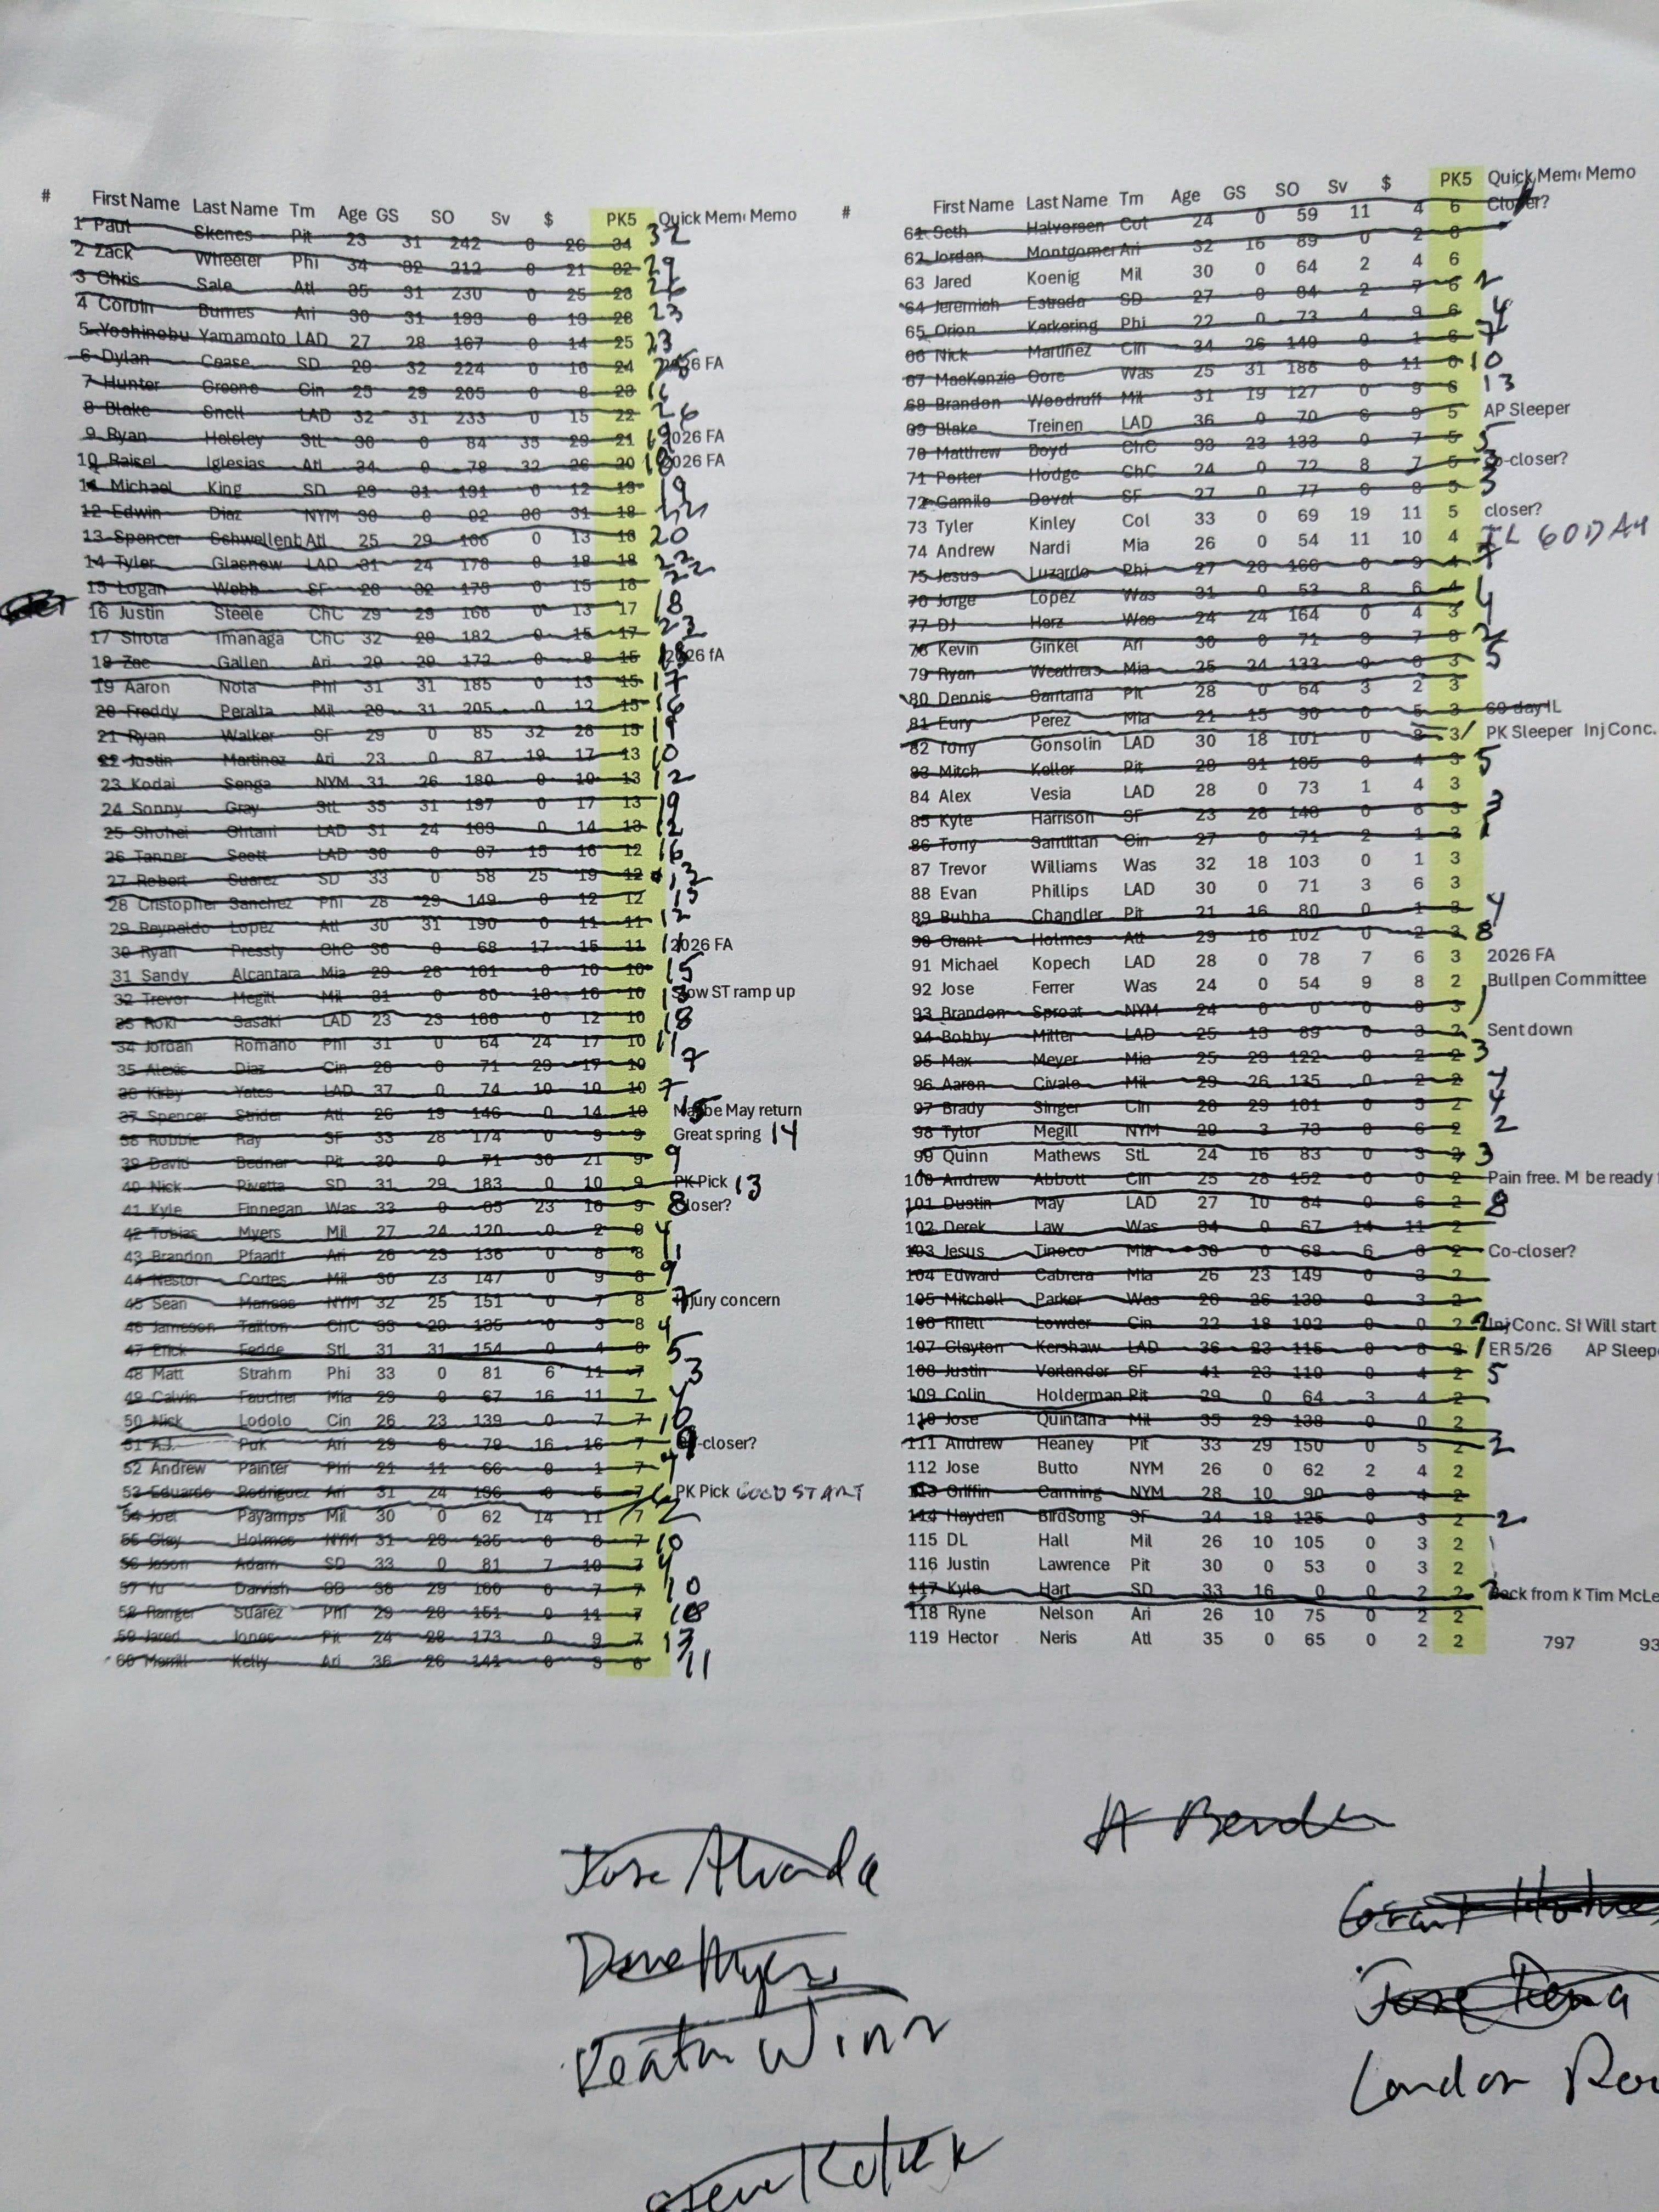 # First Name Last Name Tm Age GS SO Sv $ PK5 Quick Mem Memo
1 Paul Skenes Pit 23 31 242 0 26 34 32
2 Zack Wheeler Phi 34 32 212 0 21 32 29
3 Chris Sale Atl 35 31 230 0 25 28 26
4 Corbin Burnes Ari 30 31 193 0 13 28 23
5 Yoshinobu Yamamoto LAD 27 28 167 0 14 25 23
6 Dylan Cease SD 29 32 224 0 16 24 2026 FA
7 Hunter Greene Cin 25 29 205 0 8 23 16
8 Blake Snell LAD 32 31 233 0 15 22 26
9 Ryan Helsley StL 30 0 84 35 29 21 19 2026 FA
10 Raisel Iglesias Atl 34 0 78 32 26 20 18 2026 FA
11 Michael King SD 29 31 191 0 12 19 19
12 Edwin Diaz NYM 30 0 92 36 31 18
13 Spencer Schwellenb Atl 25 29 166 0 13 18 20
14 Tyler Glasnow LAD 31 24 178 0 18 18 22
15 Logan Webb SF 28 32 175 0 15 18 22
16 Justin Steele ChC 29 29 166 0 13 17 18
17 Shota Imanaga ChC 32 29 182 0 15 17 23
18 Zac Gallen Ari 29 29 172 0 8 15 2026 fA
19 Aaron Nola Phi 31 31 185 0 13 15 17
20 Freddy Peralta Mil 28 31 205 0 12 15 16
21 Ryan Walker SF 29 0 85 32 28 15 19
22 Justin Martinez Ari 23 0 87 19 17 13 10
23 Kodai Senga NYM 31 26 180 0 10 13 12
24 Sonny Gray StL 35 31 197 0 17 13 19
25 Shohei Ohtani LAD 31 24 163 0 14 13 12
26 Tanner Scott LAD 30 0 87 15 16 12 16
27 Robert Suarez SD 33 0 58 25 19 12 12
28 Cristopher Sanchez Phi 28 29 149 0 12 12 15
29 Reynaldo Lopez Atl 30 31 190 0 11 11 12
30 Ryan Pressly ChC 36 0 68 17 15 11 11 2026 FA
31 Sandy Alcantara Mia 29 28 161 0 10 10 15
32 Trevor Megill Mil 31 0 80 18 16 10 Slow ST ramp up
33 Roki Sasaki LAD 23 23 166 0 12 10 18
34 Jordan Romano Phi 31 0 64 24 17 10 11
35 Alexis Diaz Cin 28 0 71 29 17 10 7
36 Kirby Yates LAD 37 0 74 10 10 10 7
37 Spencer Strider Atl 26 19 146 0 14 10 15 Maybe May return
38 Robbie Ray SF 33 28 174 0 9 9 Great spring 14
39 David Bednar Pit 30 0 71 30 21 9 9
40 Nick Pivetta SD 31 29 183 0 10 9 PK Pick 13
41 Kyle Finnegan Was 33 0 65 23 16 9 8 Closer?
42 Tobias Myers Mil 27 24 120 0 2 8 4
43 Brandon Pfaadt Ari 26 23 136 0 8 8
44 Nestor Cortes Mil 30 23 147 0 9 8 9
45 Sean Manaea NYM 32 25 151 0 7 8 7 Injury concern
46 Jameson Taillon ChC 33 29 135 0 3 8 4
47 Erick Fedde StL 31 31 154 0 4 8 5
48 Matt Strahm Phi 33 0 81 6 11 7 3
49 Calvin Faucher Mia 29 0 67 16 11 7 4
50 Nick Lodolo Cin 26 23 139 0 7 7 10
51 A.J. Puk Ari 29 0 79 16 16 7 9 Co-closer?
52 Andrew Painter Phi 21 11 66 0 1 7 4
53 Eduardo Rodriguez Ari 31 24 136 0 5 7 PK Pick GOOD START
54 Joel Payamps Mil 30 0 62 14 11 7 2
55 Clay Holmes NYM 31 28 135 0 8 7 10
56 Jason Adam SD 33 0 81 7 10 7 4
57 Yu Darvish SD 38 29 166 0 7 7 10
58 Ranger Suarez Phi 29 28 151 0 11 7
59 Jared Jones Pit 24 28 173 0 9 7 13
60 Merrill Kelly Ari 36 26 141 0 3 6 11
# First Name Last Name Tm Age GS SO Sv $ PK5 Quick Mem Memo
61 Seth Halvorsen Col 24 0 59 11 4 6 Closer?
62 Jordan Montgomer Ari 32 16 89 0 2 6
63 Jared Koenig Mil 30 0 64 2 4 6
64 Jeremiah Estrada SD 27 0 84 2 7 6 2
65 Orion Kerkering Phi 22 0 73 4 9 6 4
66 Nick Martinez Cin 34 26 140 0 1 6 7
67 MacKenzie Gore Was 25 31 188 0 11 6 10
68 Brandon Woodruff Mil 31 19 127 0 9 6 13
69 Blake Treinen LAD 36 0 70 6 9 5 AP Sleeper
70 Matthew Boyd ChC 33 23 133 0 7 5 5
71 Porter Hodge ChC 24 0 72 8 7 5 3 Co-closer?
72 Camilo Doval SF 27 0 77 6 8 5 3
73 Tyler Kinley Col 33 0 69 19 11 5 closer?
74 Andrew Nardi Mia 26 0 54 11 10 4 IL 60 DAY
75 Jesus Luzardo Phi 27 28 166 0 9 4 7
76 Jorge Lopez Was 31 0 53 8 6 4
77 DJ Herz Was 24 24 164 0 4 3 4
78 Kevin Ginkel Ari 30 0 71 9 7 3 2
79 Ryan Weathers Mia 25 24 133 0 6 3 5
80 Dennis Santana Pit 28 0 64 3 2 3
81 Eury Perez Mia 21 15 96 0 5 3 60 day IL
82 Tony Gonsolin LAD 30 18 101 0 8 3 PK Sleeper Inj Conc.
83 Mitch Keller Pit 29 31 165 0 4 3 5
84 Alex Vesia LAD 28 0 73 1 4 3
85 Kyle Harrison SF 23 26 140 0 6 3 3
86 Tony Santillan Cin 27 0 71 2 1 3 1
87 Trevor Williams Was 32 18 103 0 1 3
88 Evan Phillips LAD 30 0 71 3 6 3
89 Bubba Chandler Pit 21 16 80 0 1 3 4
90 Grant Holmes Atl 29 16 102 0 2 3 8
91 Michael Kopech LAD 28 0 78 7 6 3 2026 FA
92 Jose Ferrer Was 24 0 54 9 8 2 Bullpen Committee
93 Brandon Sproat NYM 24 0 0 0 0 3 1
94 Bobby Miller LAD 25 13 89 0 3 2 Sent down
95 Max Meyer Mia 25 23 122 0 2 2 3
96 Aaron Civale Mil 29 26 135 0 2 2 4
97 Brady Singer Cin 28 29 161 0 5 2 4
98 Tylor Megill NYM 29 3 73 0 6 2 2
99 Quinn Mathews StL 24 16 83 0 3 2 3
100 Andrew Abbott Cin 25 28 152 0 0 2 Pain free. M be ready
101 Dustin May LAD 27 10 84 0 6 2 8
102 Derek Law Was 34 0 67 14 11 2
103 Jesus Tinoco Mia 30 0 68 6 8 2 Co-closer?
104 Edward Cabrera Mia 26 23 149 0 3 2
105 Mitchell Parker Was 26 26 139 0 3 2
106 Rhett Lowder Cin 22 18 102 0 0 2 2 Inj Conc. SI Will start
107 Clayton Kershaw LAD 36 23 115 0 8 2 1 ER 5/26 AP Sleep
108 Justin Verlander SF 41 23 110 0 4 2 5
109 Colin Holderman Pit 29 0 64 3 4 2
110 Jose Quintana Mil 35 29 138 0 0 2
111 Andrew Heaney Pit 33 29 150 0 5 2 2
112 Jose Butto NYM 26 0 62 2 4 2
113 Griffin Canning NYM 28 10 90 0 4 2
114 Hayden Birdsong SF 24 18 125 0 3 2 2
115 DL Hall Mil 26 10 105 0 3 2
116 Justin Lawrence Pit 30 0 53 0 3 2
117 Kyle Hart SD 33 16 0 0 2 2 Back from K Tim McLe
118 Ryne Nelson Ari 26 10 75 0 2 2
119 Hector Neris Atl 35 0 65 0 2 2 797 93
Jose Alvarda
Keatn Winn
Grant Holmes
Jose
London